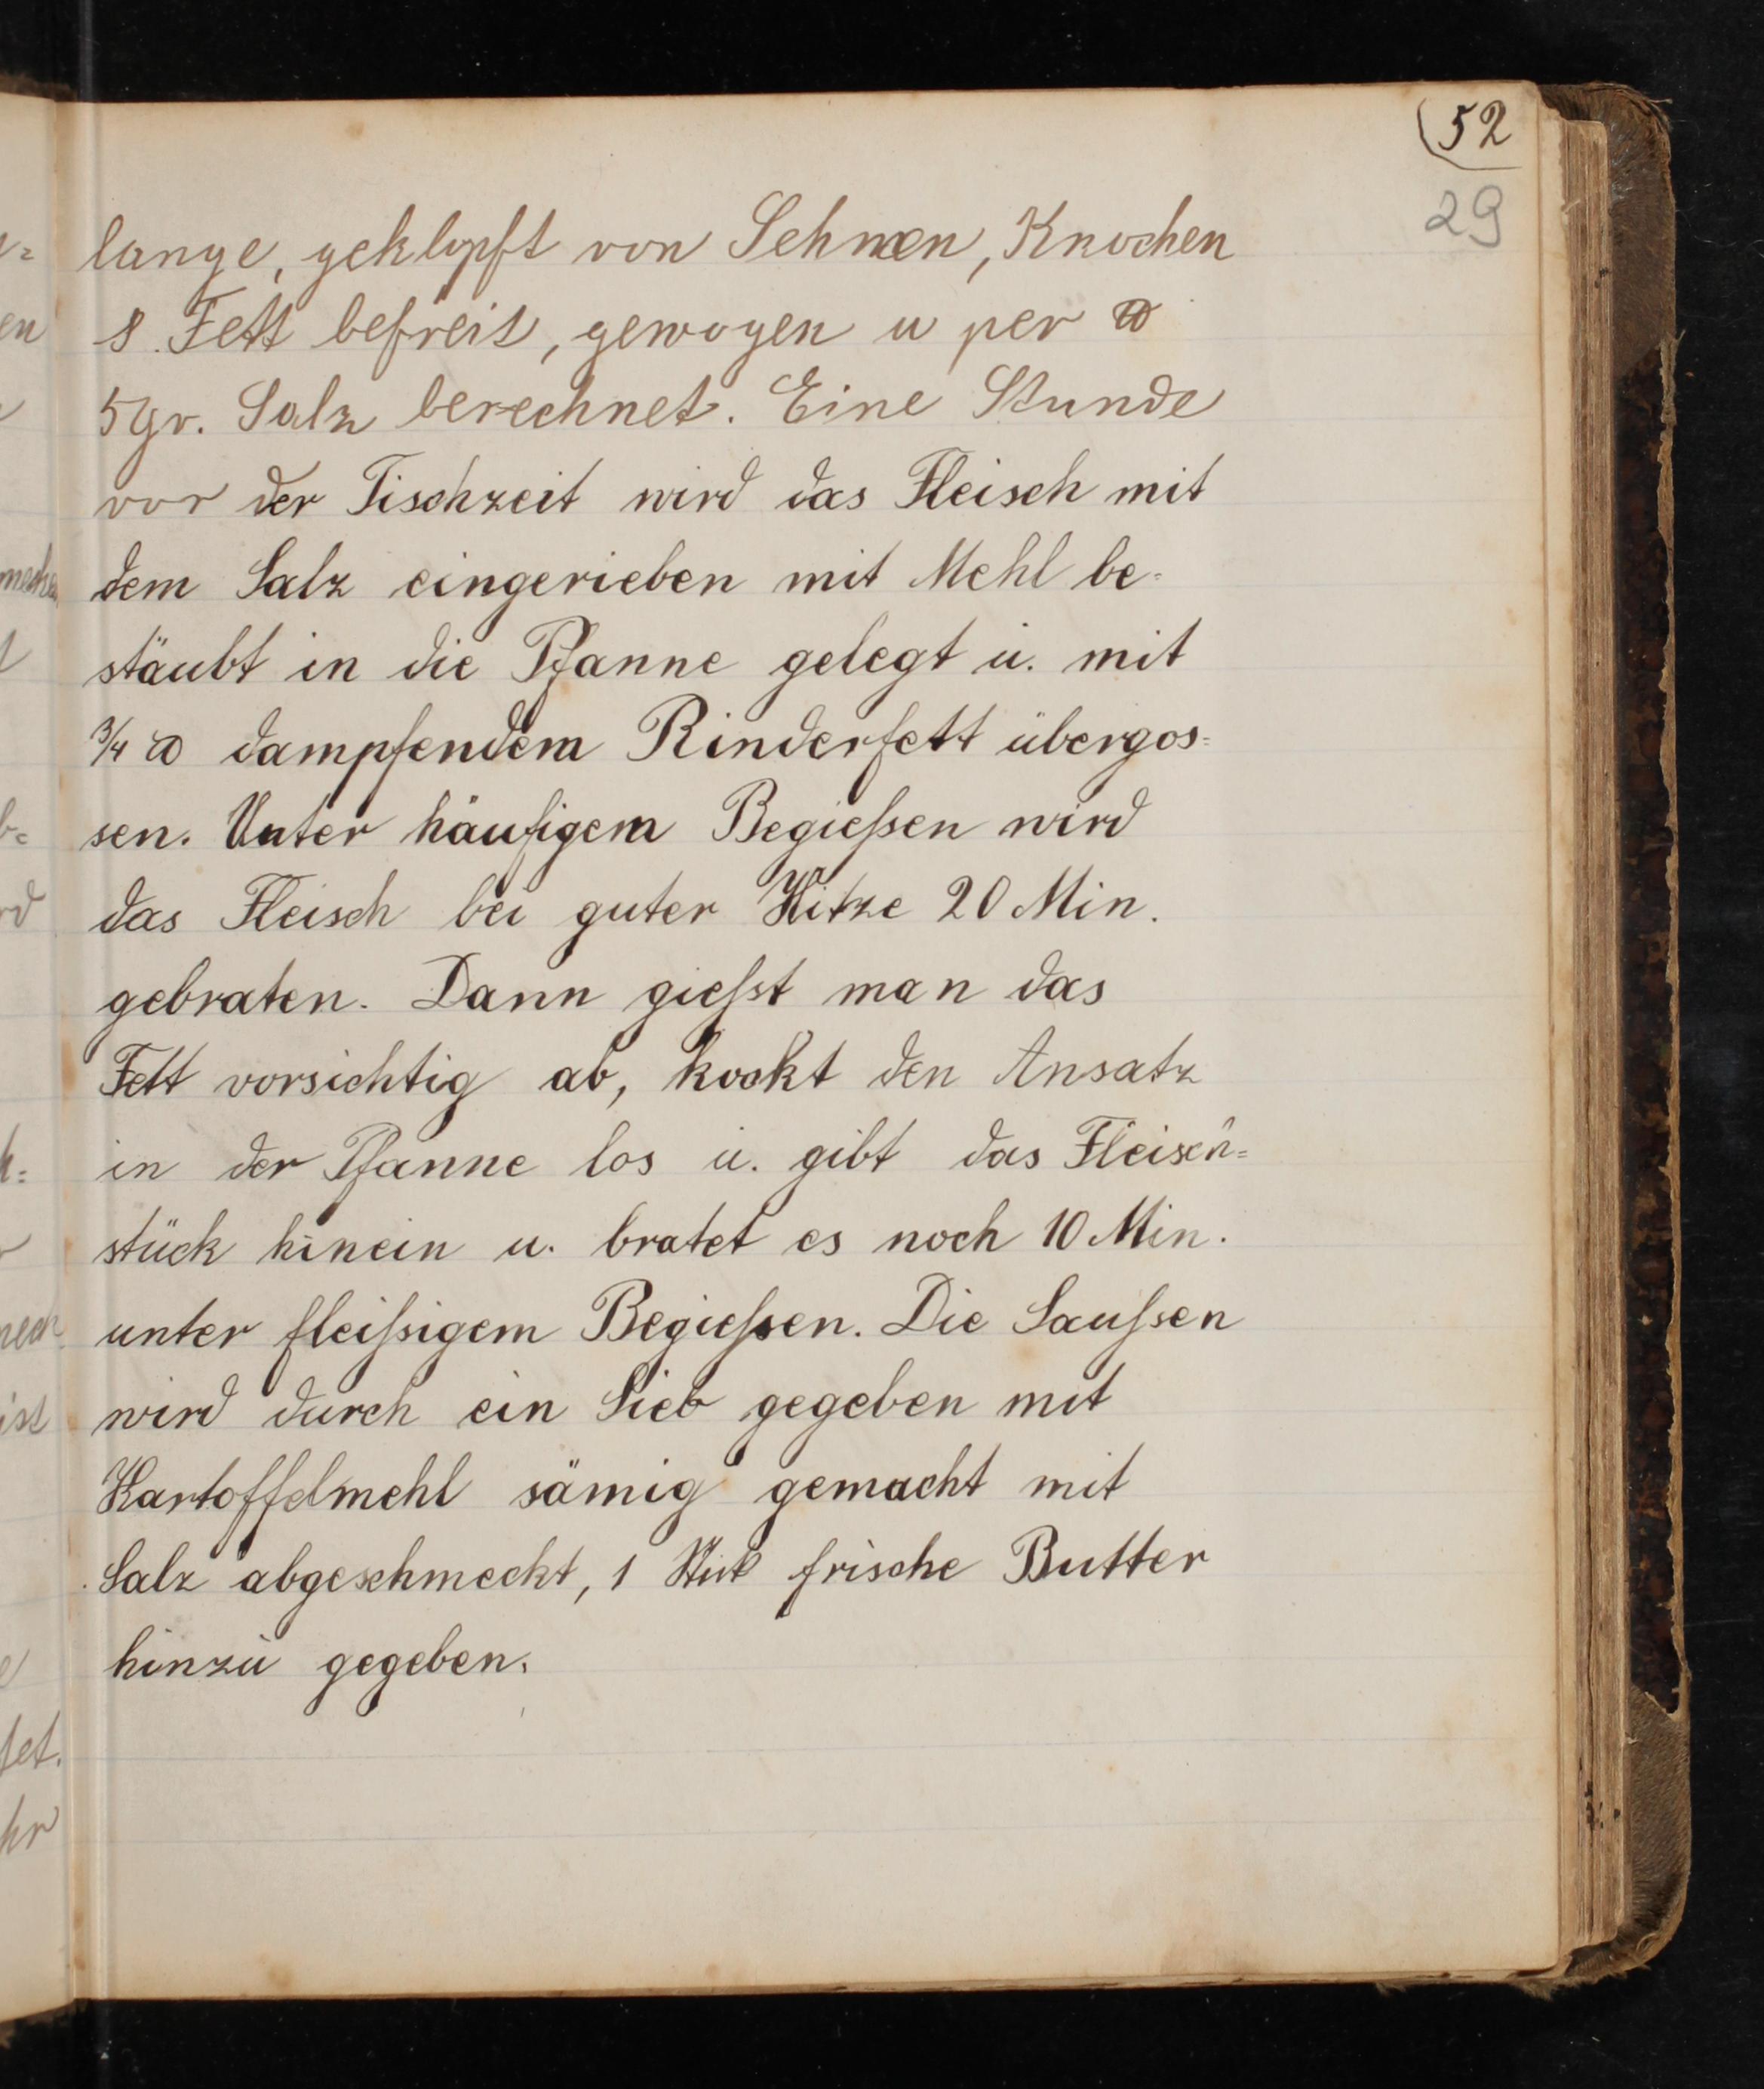 52
29
lange, geklopft von Sehnen, Knochen
& Fett befreit, gewogen u per ℔
5gr. Salz berechnet. Eine Stunde
vor der Tischzeit wird das Fleisch mit
dem Salz eingerieben mit Mehl be=
stäubt in die Pfanne gelegt u. mit
3/4 ℔ dampfendem Rinderfett übergos=
sen. Unter häufigem Begießen wird
das Fleisch bei guter Hitze 20 Min.
gebraten. Dann gießt man das
Fett vorsichtig ab, kocht den Ansatz
in der Pfanne los u. gibt das Fleisch=
stück hinein u. bratet es noch 10 Min.
unter fleißigem Begießen. Die Saußen
wird durch ein Sieb gegeben mit
Kartoffelmehl sämig gemacht mit
Salz abgeschmeckt, 1 Stük frische Butter
hinzu gegeben.